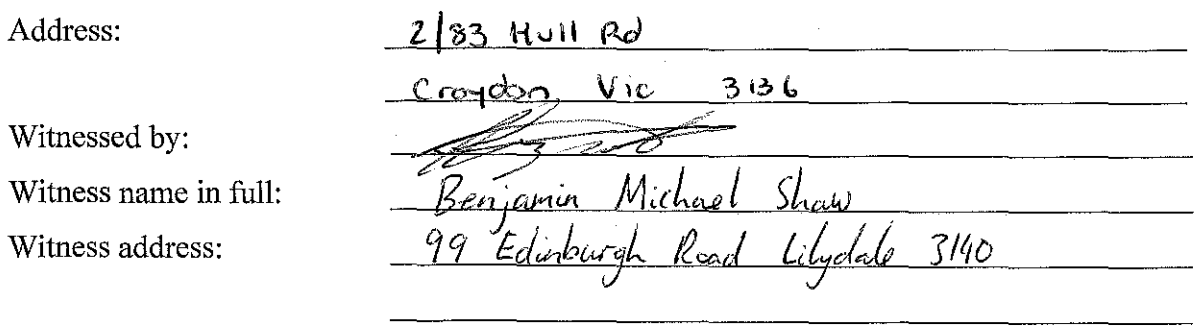 Address: 2/83 Hull Rd
Croydon Vic 3136
Witnessed by:
Witness name in full: Benjamin Michael Shaw
Witness address: 99 Edinburgh Road Lilydale 3140